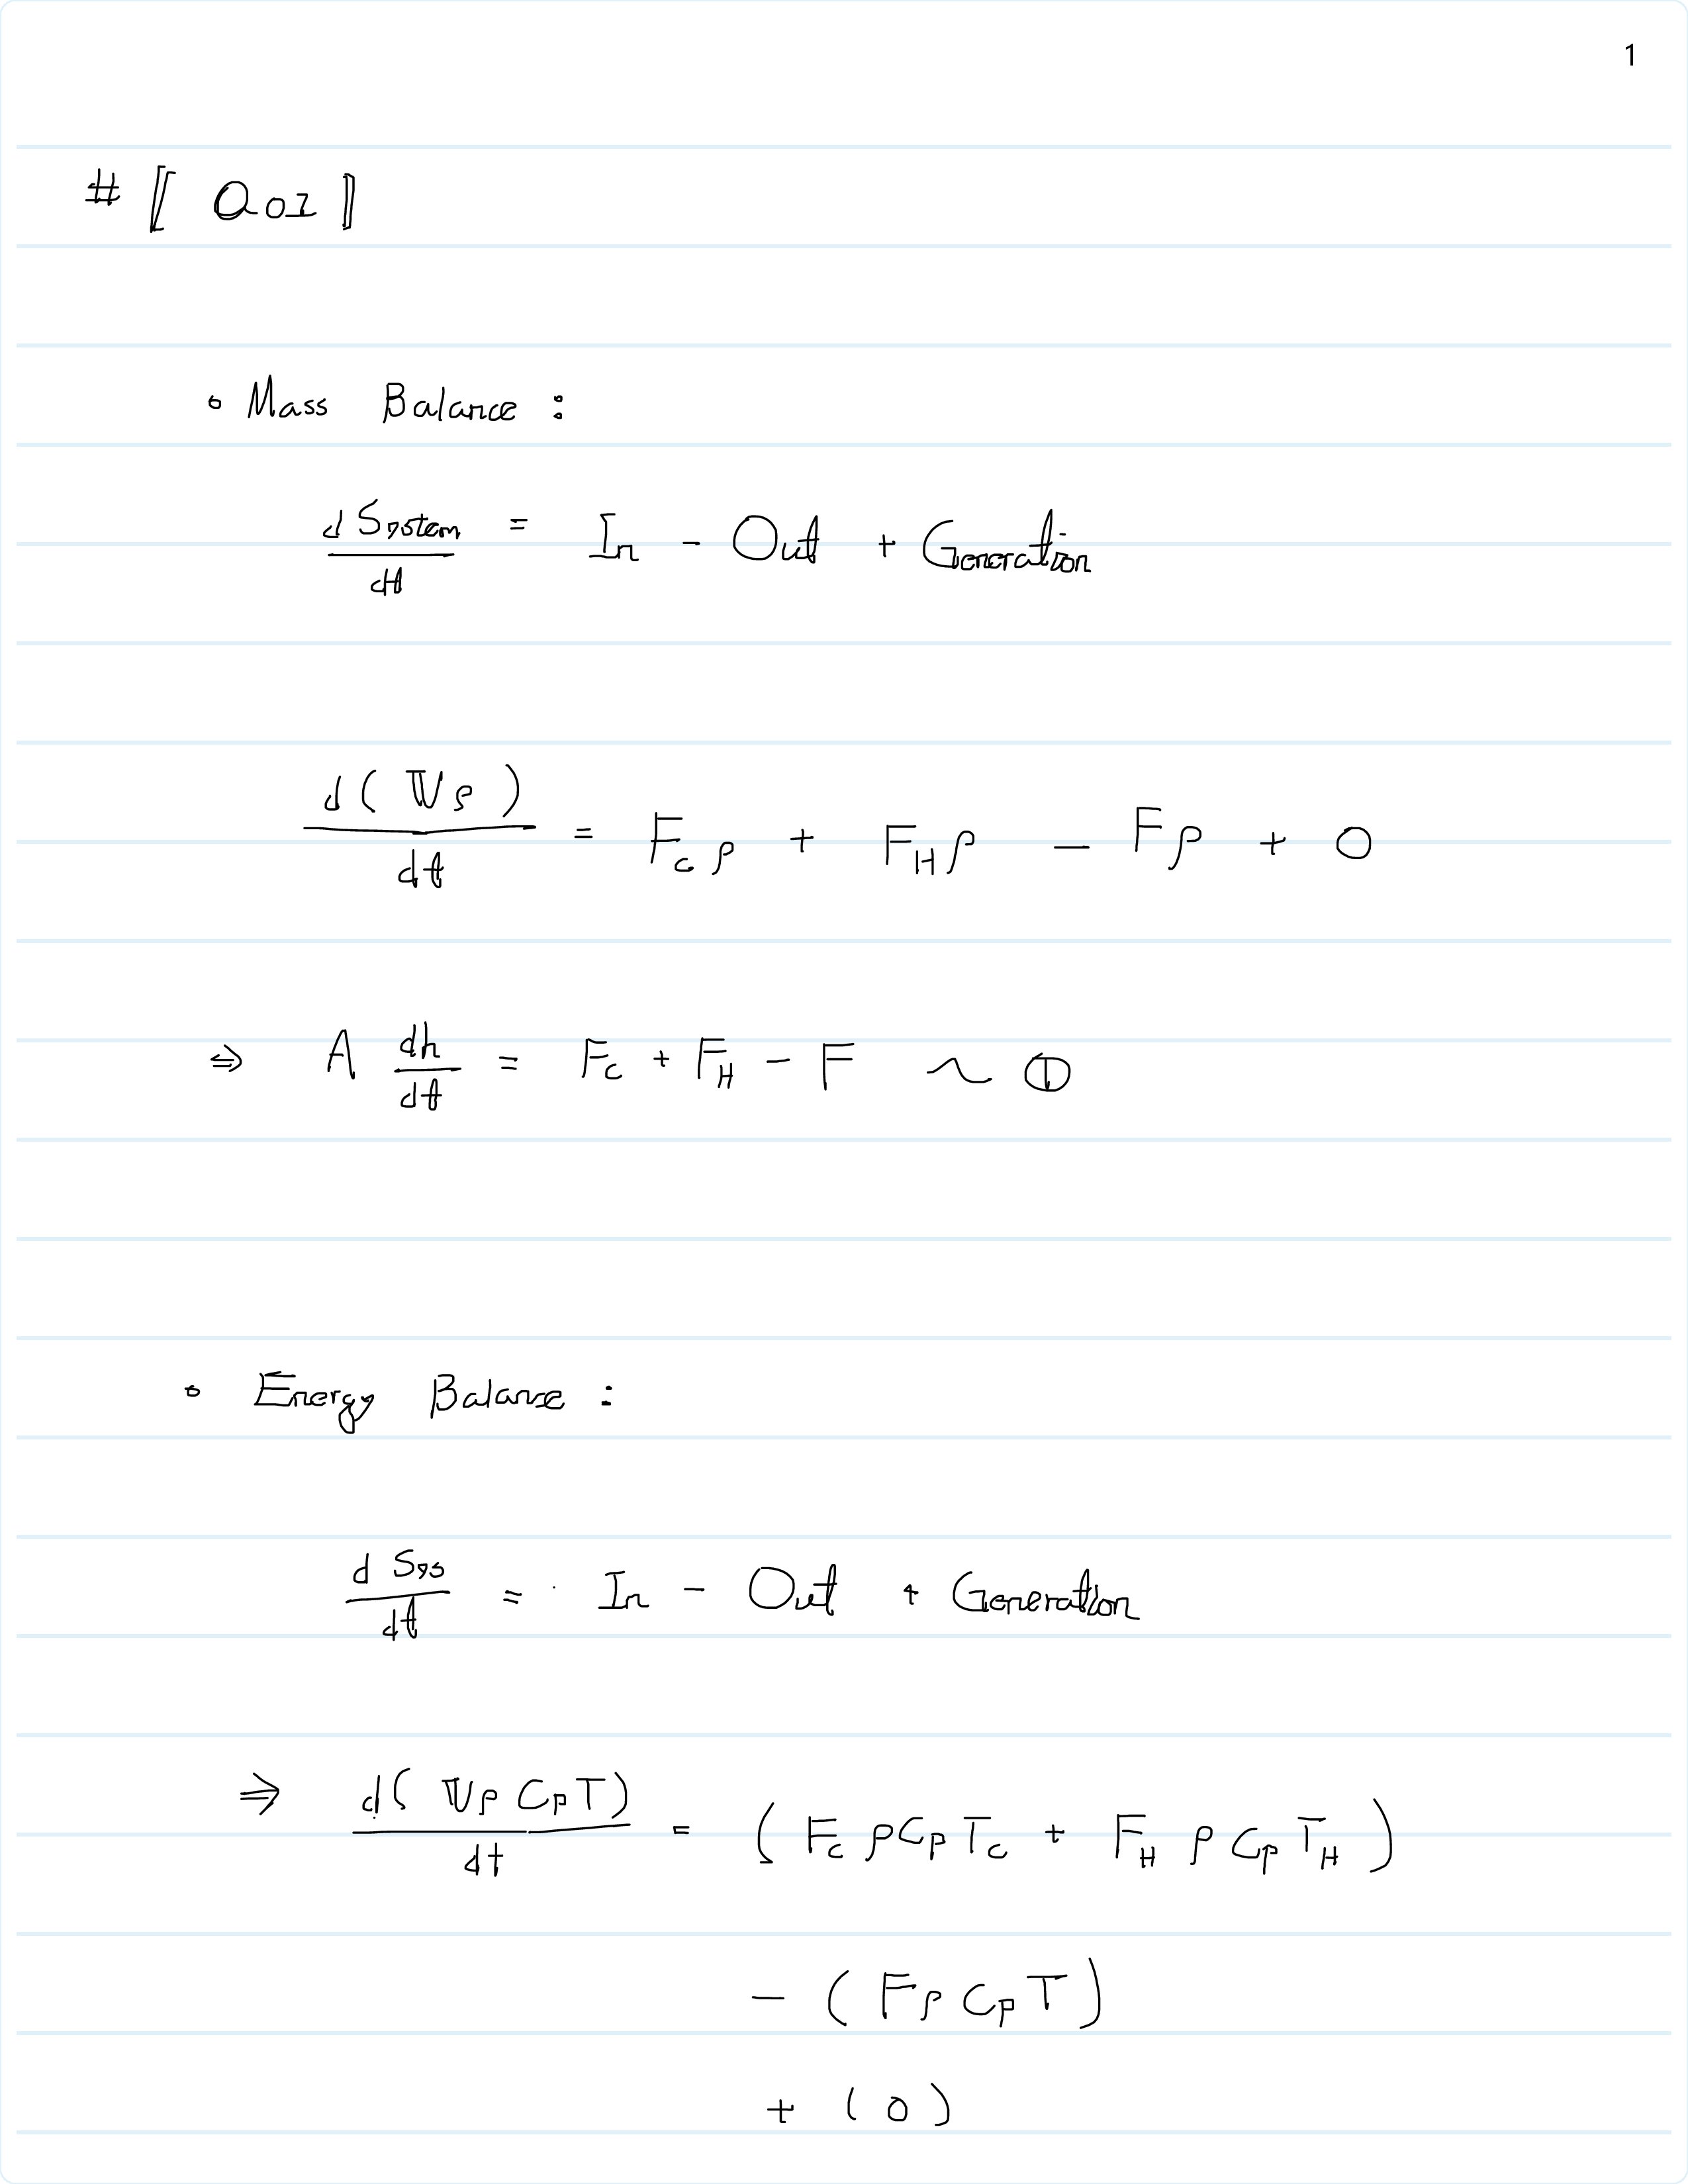 1
# ⟦ Q01 ⟧
∘ Mass Balance :
d System / dt = In - Out + Generation
d( Vρ ) / dt = F_c ρ + F_H ρ - Fρ + 0
⇒ A dh/dt = F_c + F_H - F ~ ①
∘ Energy Balance :
d Sys / dt = In - Out + Generation
⇒ d( Vρ CpT) / dt = ( F_c ρ Cp T_c + F_H ρ Cp T_H )
- ( Fρ CpT )
+ ( 0 )